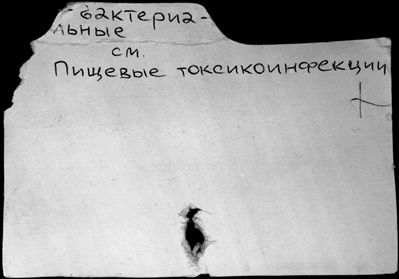 - бактериа-
льные
см.
Пищевые токсикоинфекции